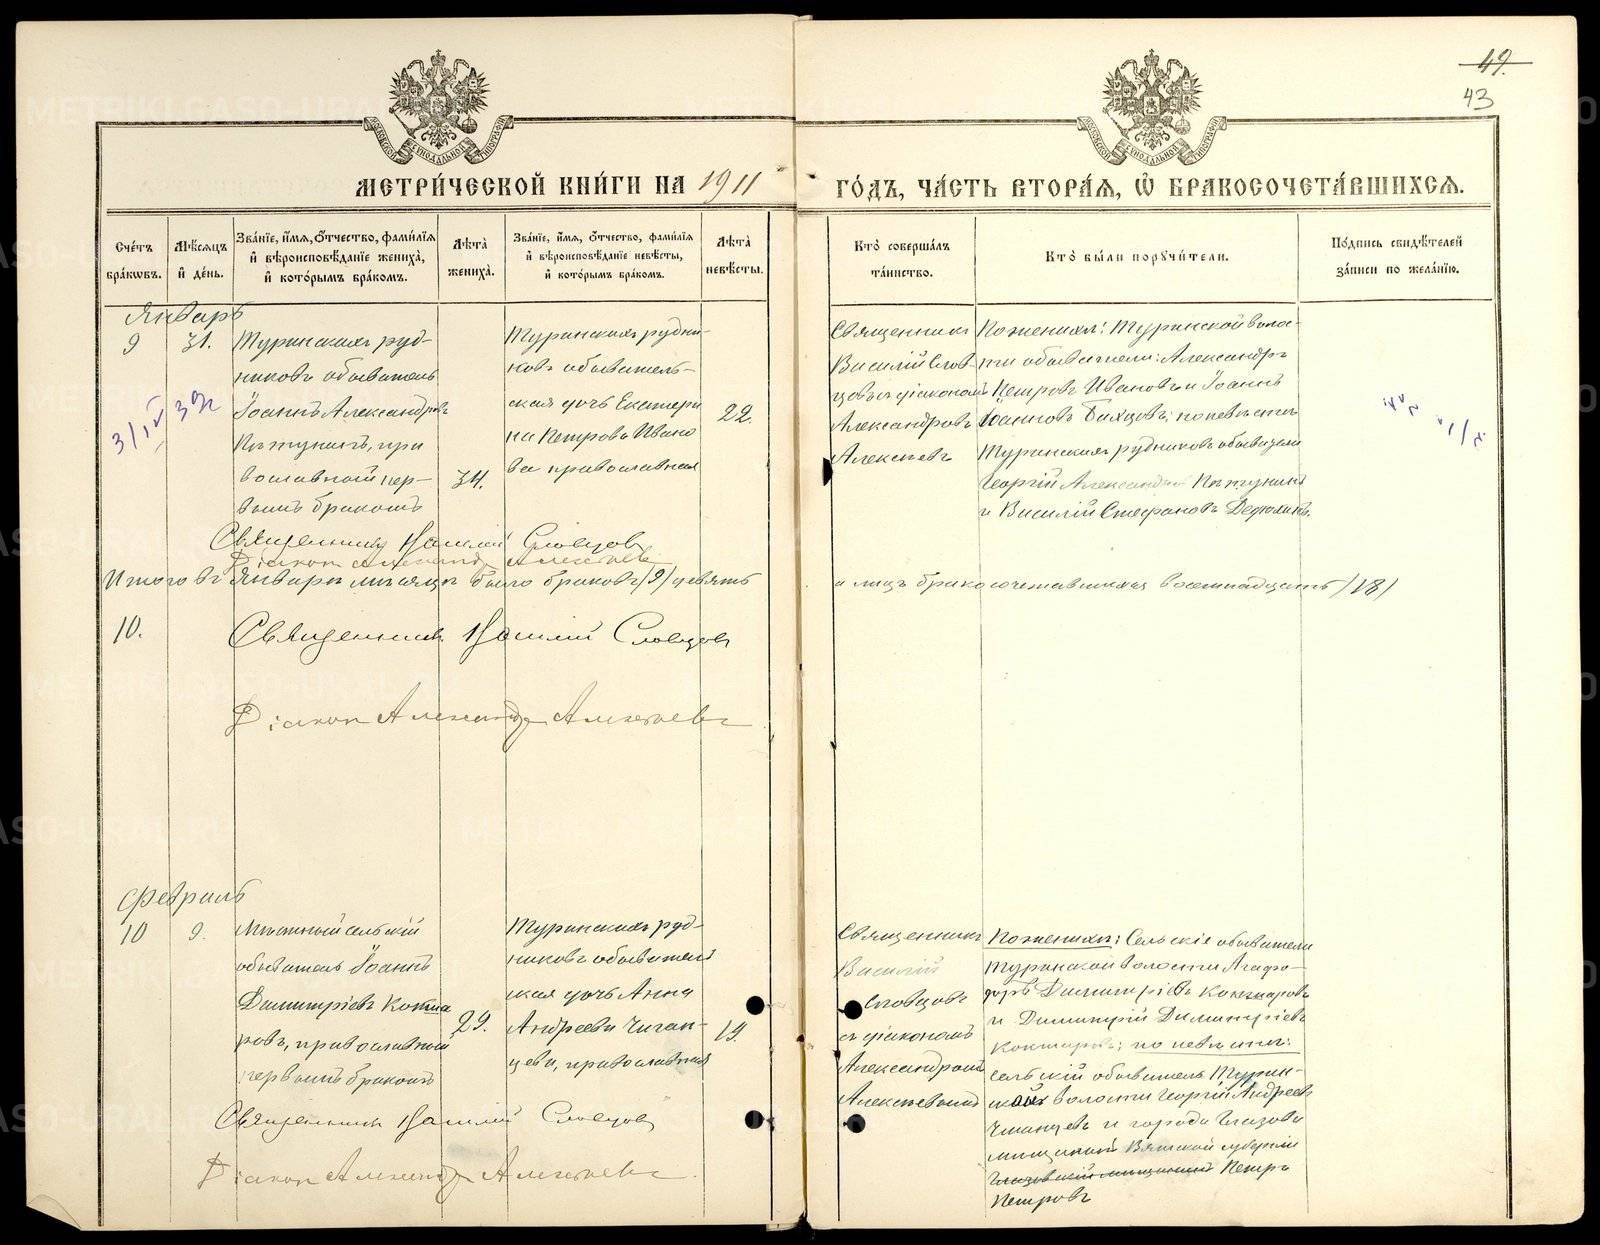 49.
43
МЕТРИ́ЧЕСКОЙ КНИ́ГИ НА 1911
ГО́ДЪ, ЧА́СТЬ ВТОРА́Я, Ѿ БРАКОСОЧЕТА́ВШИХСЯ.
Сче́тъ бра́кωвъ.
Мѣ́сяцъ и҆ де́нь.
Зва́нїе, и҆́мя, ѻ҆́тчество, фами́лїя и҆ вѣроисповѣ́данїе жениха̀, и҆ кото́рымъ бра́комъ.
Лѣ́та жениха̀.
Зва́нїе, и҆́мя, ѻ҆́тчество, фами́лїя и҆ вѣроисповѣ́данїе невѣ́сты, и҆ кото́рымъ бра́комъ.
Лѣ́та невѣ́сты.
Кто̀ соверша́лъ та́инство.
Кто̀ бы́ли порꙋчи́тели.
По́дпись свидѣ́телей за́писи по жела́нїю.
Январь
9
31.
Туринскихъ руд-
никовъ обыватель
Іоаннъ Александровъ
Кѣтунинъ, пра
вославный пер-
вымъ бракомъ
34.
Туринскихъ рудни-
ковъ обыватель-
ская дочь Екатери
на Петрова Ивано
ва православная
22.
Священникъ
Василій Слов-
цовъ съ діакономъ
Александровъ
Алексѣевъ
По женихѣ: Туринской волос-
ти обыватели: Александръ
Петровъ Ивановъ и Іоаннъ
Іоанновъ Бахцовъ; по невѣстѣ
Туринскихъ рудниковъ обыватели
Георгій Александровъ Кѣтунинъ
и Василій Стефановъ Дерюшевъ.
Священникъ Василій Словцовъ
Діаконъ Александръ Алексѣевъ
Итого въ Январѣ мѣсяцѣ было браковъ /9/ девять
а лицъ бракосочетавшихся восемнадцать /18/
10.
Священникъ Василій Словцовъ
Діаконъ Александръ Алексѣевъ
Февраль
10
9.
Мѣстный сельскій
обыватель Іоаннъ
Димитріевъ Кокша
ровъ, православный
первымъ бракомъ
29.
Туринскихъ руд-
никовъ обыватель
ская дочь Анна
Андреева Чиган-
цева, православная
19.
Священникъ
Василій
Словцовъ
съ діакономъ
Александромъ
Алексѣевымъ
По женихѣ: Сельскіе обыватели
Туринской волости Агафо-
доръ Димитріевъ Кокшаровъ
и Димитрій Димитріевъ
Кокшаровъ; по невѣстѣ:
сельскій обыватель Турин-
ской волости Георгій Андреевъ
и города Глазова
мѣщанинъ Вятской губерніи
Петръ
Петровъ
Священникъ Василій Словцовъ
Діаконъ Александръ Алексѣевъ